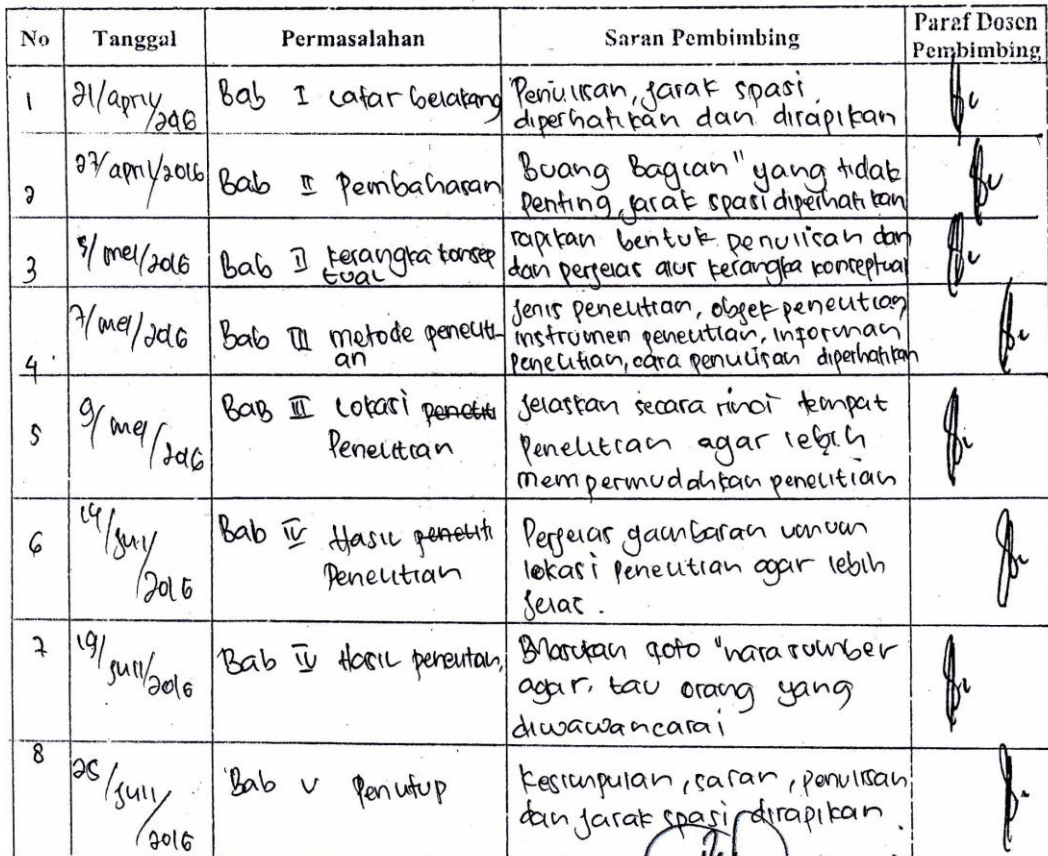 No Tanggal Permasalahan Saran Pembimbing Paraf Dosen Pembimbing
1 21/april/2016 Bab I Latar belakang Penulisan, jarak spasi
diperhatikan dan dirapikan
2 27/april/2016 Bab II Pembahasan Buang Bagian" yang tidak
Penting, jarak spasi diperhatikan
3 5/mei/2016 Bab II kerangka konsep
tual
rapikan bentuk penulisan dan
dan perjelas alur kerangka konseptual
4 7/mei/2016 Bab III metode peneliti-
an
Jenis penelitian, objek penelitian
instrumen penelitian, informan
penelitian, cara penulisan diperhatikan
5 9/mei/2016 Bab III Lokasi peneliti
Penelitian
Jelaskan secara rinci tempat
Penelitian agar lebih
mempermudahkan penelitian
6 14/juli/2016 Bab IV Hasil peneliti
Penelitian
Perjelas gambaran umum
lokasi penelitian agar lebih
jelas.
7 19/juli/2016 Bab IV Hasil penelitian,
Masukan foto "narasumber
agar, tau orang yang
diwawancarai
8 25/juli/2016 Bab V Penutup
Kesimpulan, saran, penulisan
dan jarak spasi dirapikan.